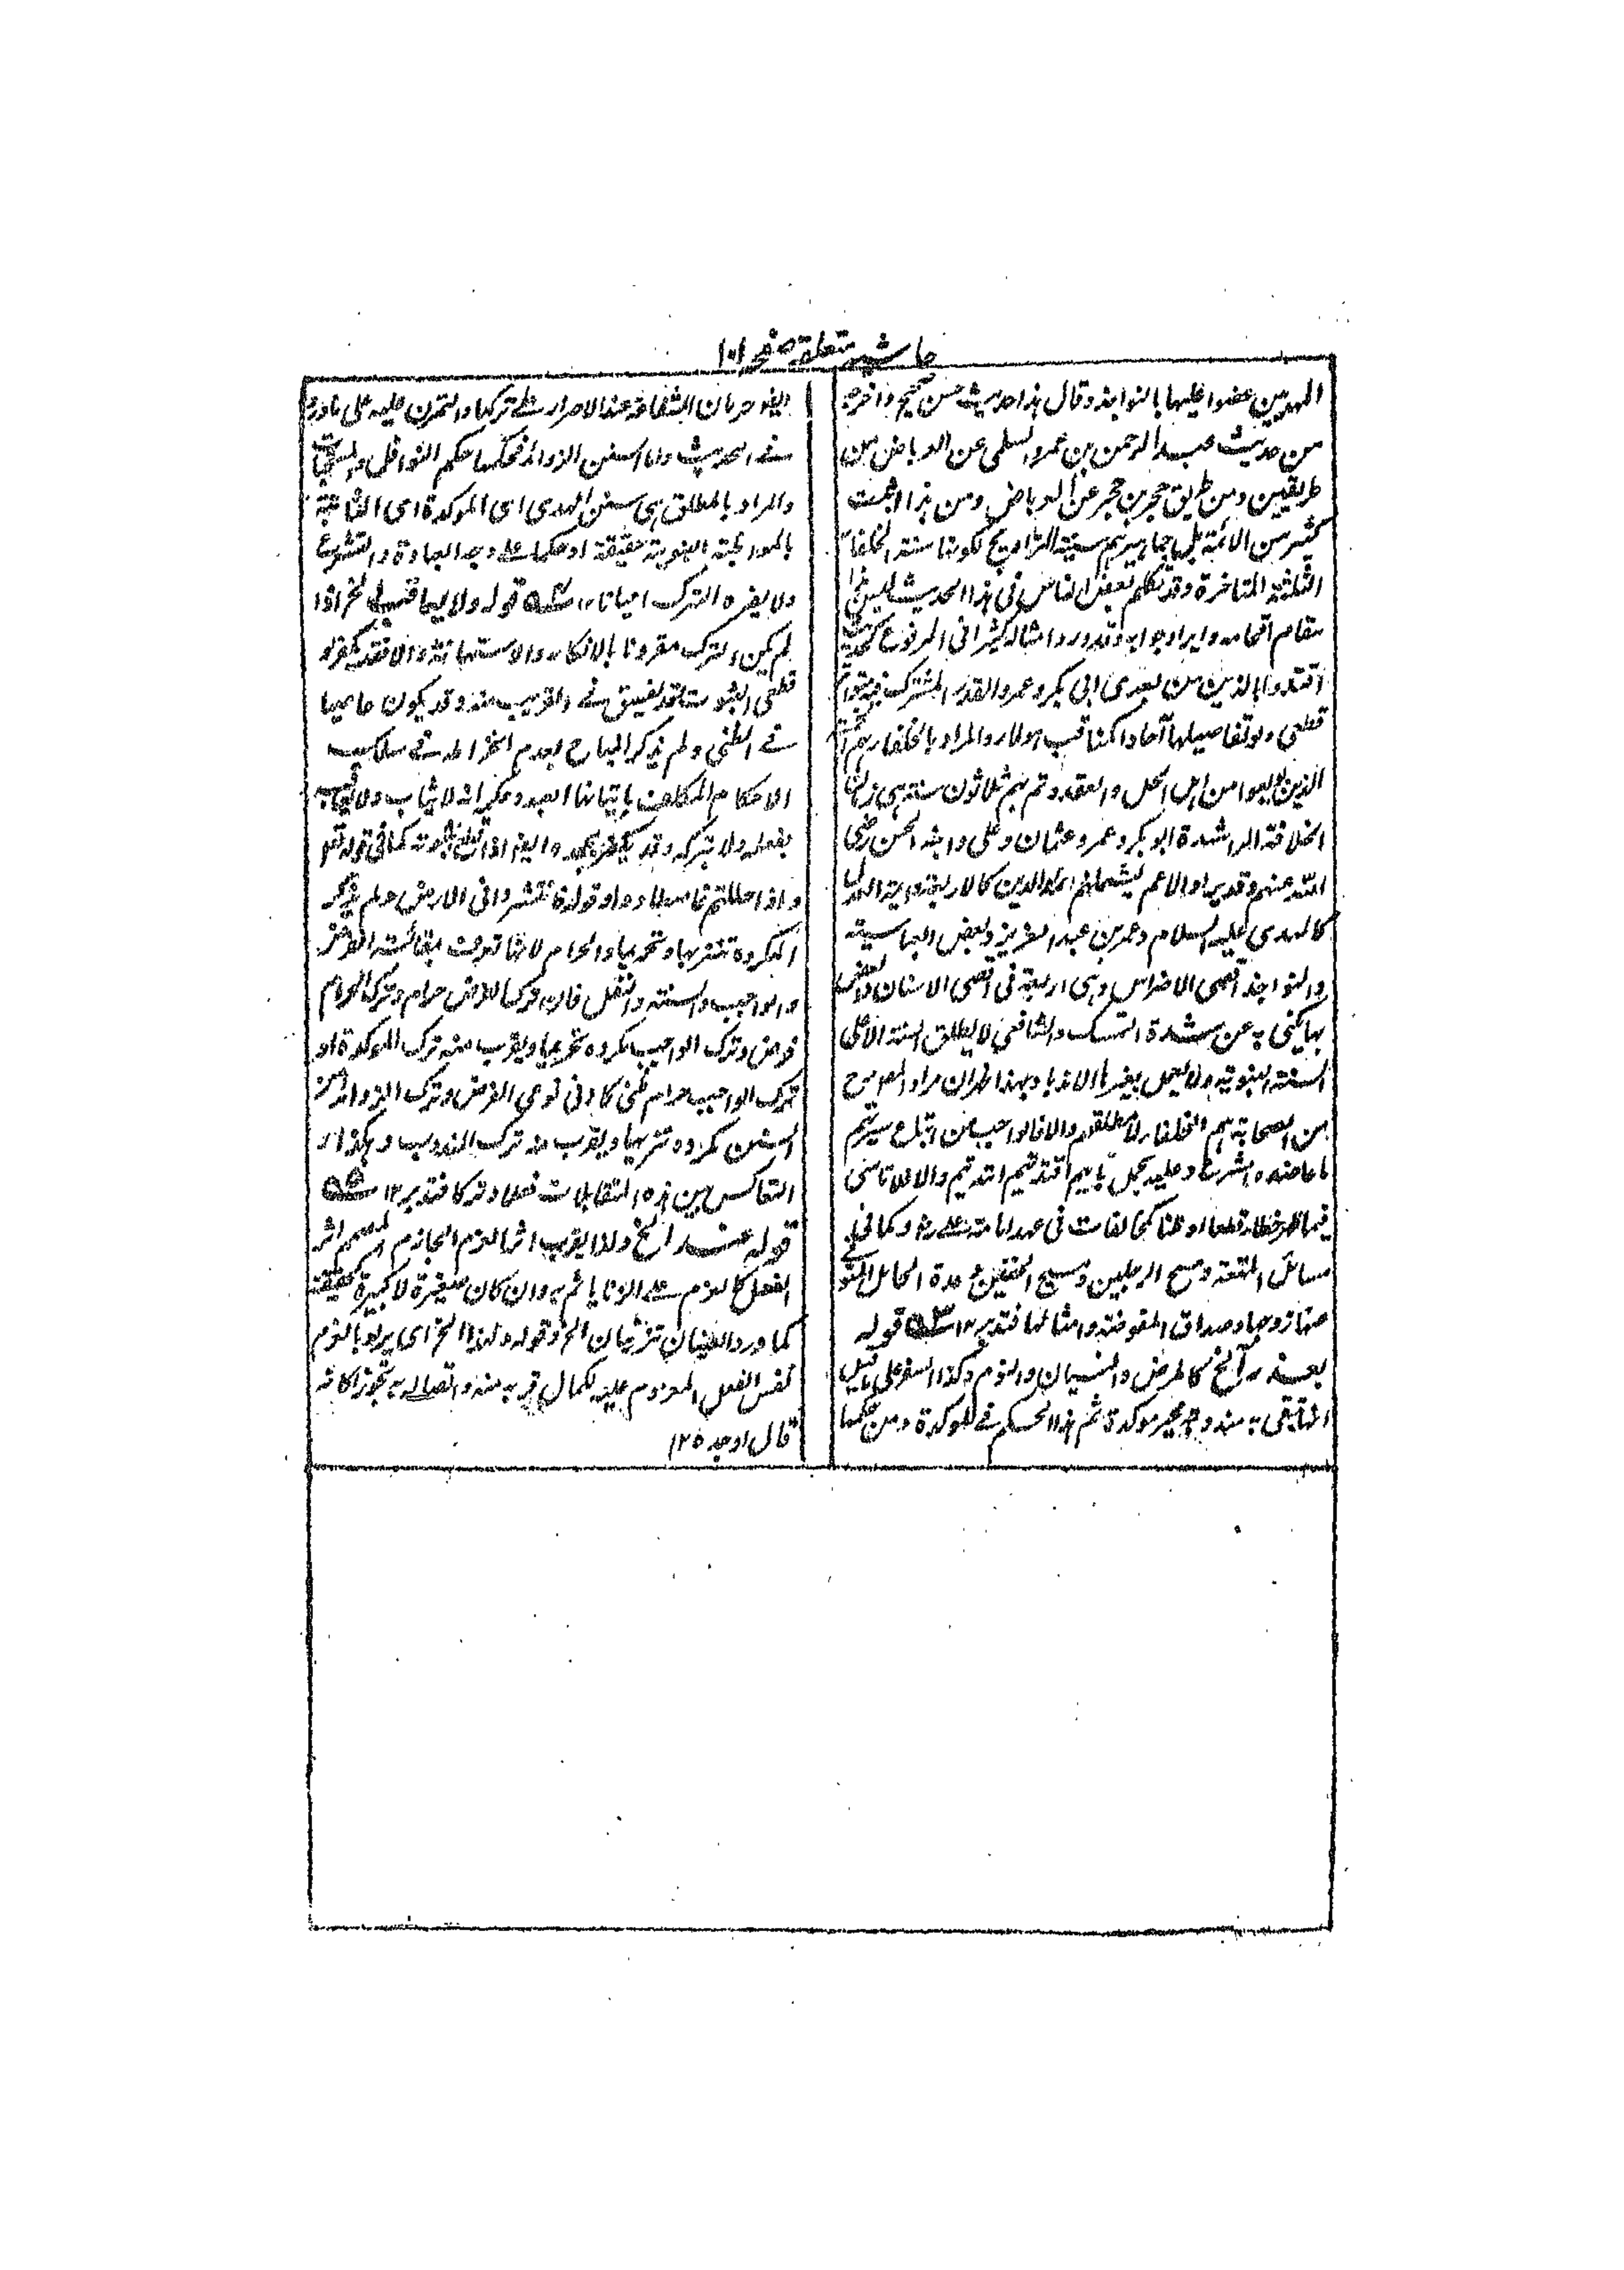 حاشیہ متعلقہ صفحہ ۱۰۱
المهديين عضوا عليها بالنواجذ وقال هذا حديث حسن صحيح واخرجه
من حديث عبد الرحمن بن عمرو السلمي عن العرباض من
طريقين ومن طريق حجر بن حجر عن العرباض ومن هذا اثبت
كثير من الائمة بل جماهيرهم سنية التراويح لكونها سنة الخلفاء
الثلثة المتاخرة وقد تكلم بعض الناس في هذا الحديث ليس هذا
مقام اقحامه وايراد جوابه وقد ورد امثاله كثيرا في المرفوع كحديث
اقتدوا بالذين من بعدي ابي بكر وعمر والقدر المشترك فيه متواتر
قطعي ولو تفاصيلها آحادا كمناقب هولاء والمراد بالخلفاء هم
الذين بويعوا من اهل الحل والعقد وتم بهم ثلاثون سنة هي زمان
الخلافة الراشدة ابو بكر وعمر وعثمان وعلي وابنه الحسن رضي
الله عنهم وقد يراد الاعم ليشملهم ائمة الدين كالاربعة وائمة العدل
كالمهدي عليه السلام وعمر بن عبد العزيز وبعض العباسية
والنواجذ اقصى الاضراس وهي اربعة في اقصى الاسنان والعض
بها يكنى به عن شدة التمسك والشافعي لا يطلق السنة الا على
السنة النبوية ولا يعمل بغيرها الا ندبا وبهذا ظهر ان مراد المصرح
من الصحابة هم الخلفاء لا مطلقهم والا فالواجب من اتباع سيرتهم
ما عاضده الشرع وعليه يحمل بايهم اقتديتم اهتديتم والا فلا تاسي
فيما ظهر خطاؤه قطعا او ظنا كمخالفات في عهد امامة علي رض وكما في
مسائل المتعة ومسح الرجلين ومسح الخفين وعدة الحامل المتوفى
عنها زوجها وصداق المفوضة وامثالها فتدبر ۱۲ ۵۳ قوله
بعذر الخ كالمرض والنسيان والنوم وكذا السفر على ما قيل
انها تبقى به مندوبة غير موكدة ثم هذا الحكم في الموكدة ومن حكمها
ايضا حرمان الشفاعة عند الاصرار على تركها والتمرن عليه على ما ورد
في الحديث واما السنن الزوائد فحكمها حكم النوافل والمستحبات
والمراد بالمطلق هي سنن الهدى اي الموكدة اي الثابتة
بالمواظبة النبوية حقيقة او حكما على وجه العبادة والتشرع
ولا يضره الترك احيانا ۱۲ ۵۴ قوله ولا يعاقب الخ اذا
لم يكن الترك مقرونا بالانكار والاستهانة والا فقد يكفر لو
قطعي الثبوت وقد يفسق في القريب منه وقد يكون عاصيا
في الظني ولم يذكر المباح لعدم انخراطه في سلك
الاحكام المكلف باتيانها العبد وحكمه انه لا يثاب ولا يعاقب
بفعله ولا بتركه وقد يكفر بجحده ايضا اذا قطعي ثبوته كما في قوله تعالى
واذا حللتم فاصطادوا وقوله فانتشروا في الارض ولم يذكر
المكروه تنزيها وتحريما والحرام لانها تعرف بمقايسة الفرض
والواجب والسنة والنفل فان ترك الفرض حرام وترك الحرام
فرض وترك الواجب مكروه تحريما ويقرب منه ترك الموكدة او
ترك الواجب حرام ظني كما في نوعي الفرض وترك الزوائد من
السنن مكروه تنزيها ويقرب منه ترك المندوب وهكذا
التعاكس بين هذه المتقابلات فعلا وتركا فتدبر ۱۲ ۵۵
قوله عند الخ ولذا يقرب اثما العزم الجازم المصمم اثر
الفعل كالعزم على الزنا ياثم به وان كان صغيرة لا كبيرة حقيقة
كما ورد العينان تزنيان الخ وقوله ولهذا الخ اي يراد بالعزم
نفس الفعل المعزوم عليه لكمال قربه منه واتصاله به تجوزا كانه
قال اوجد ۱۲۵